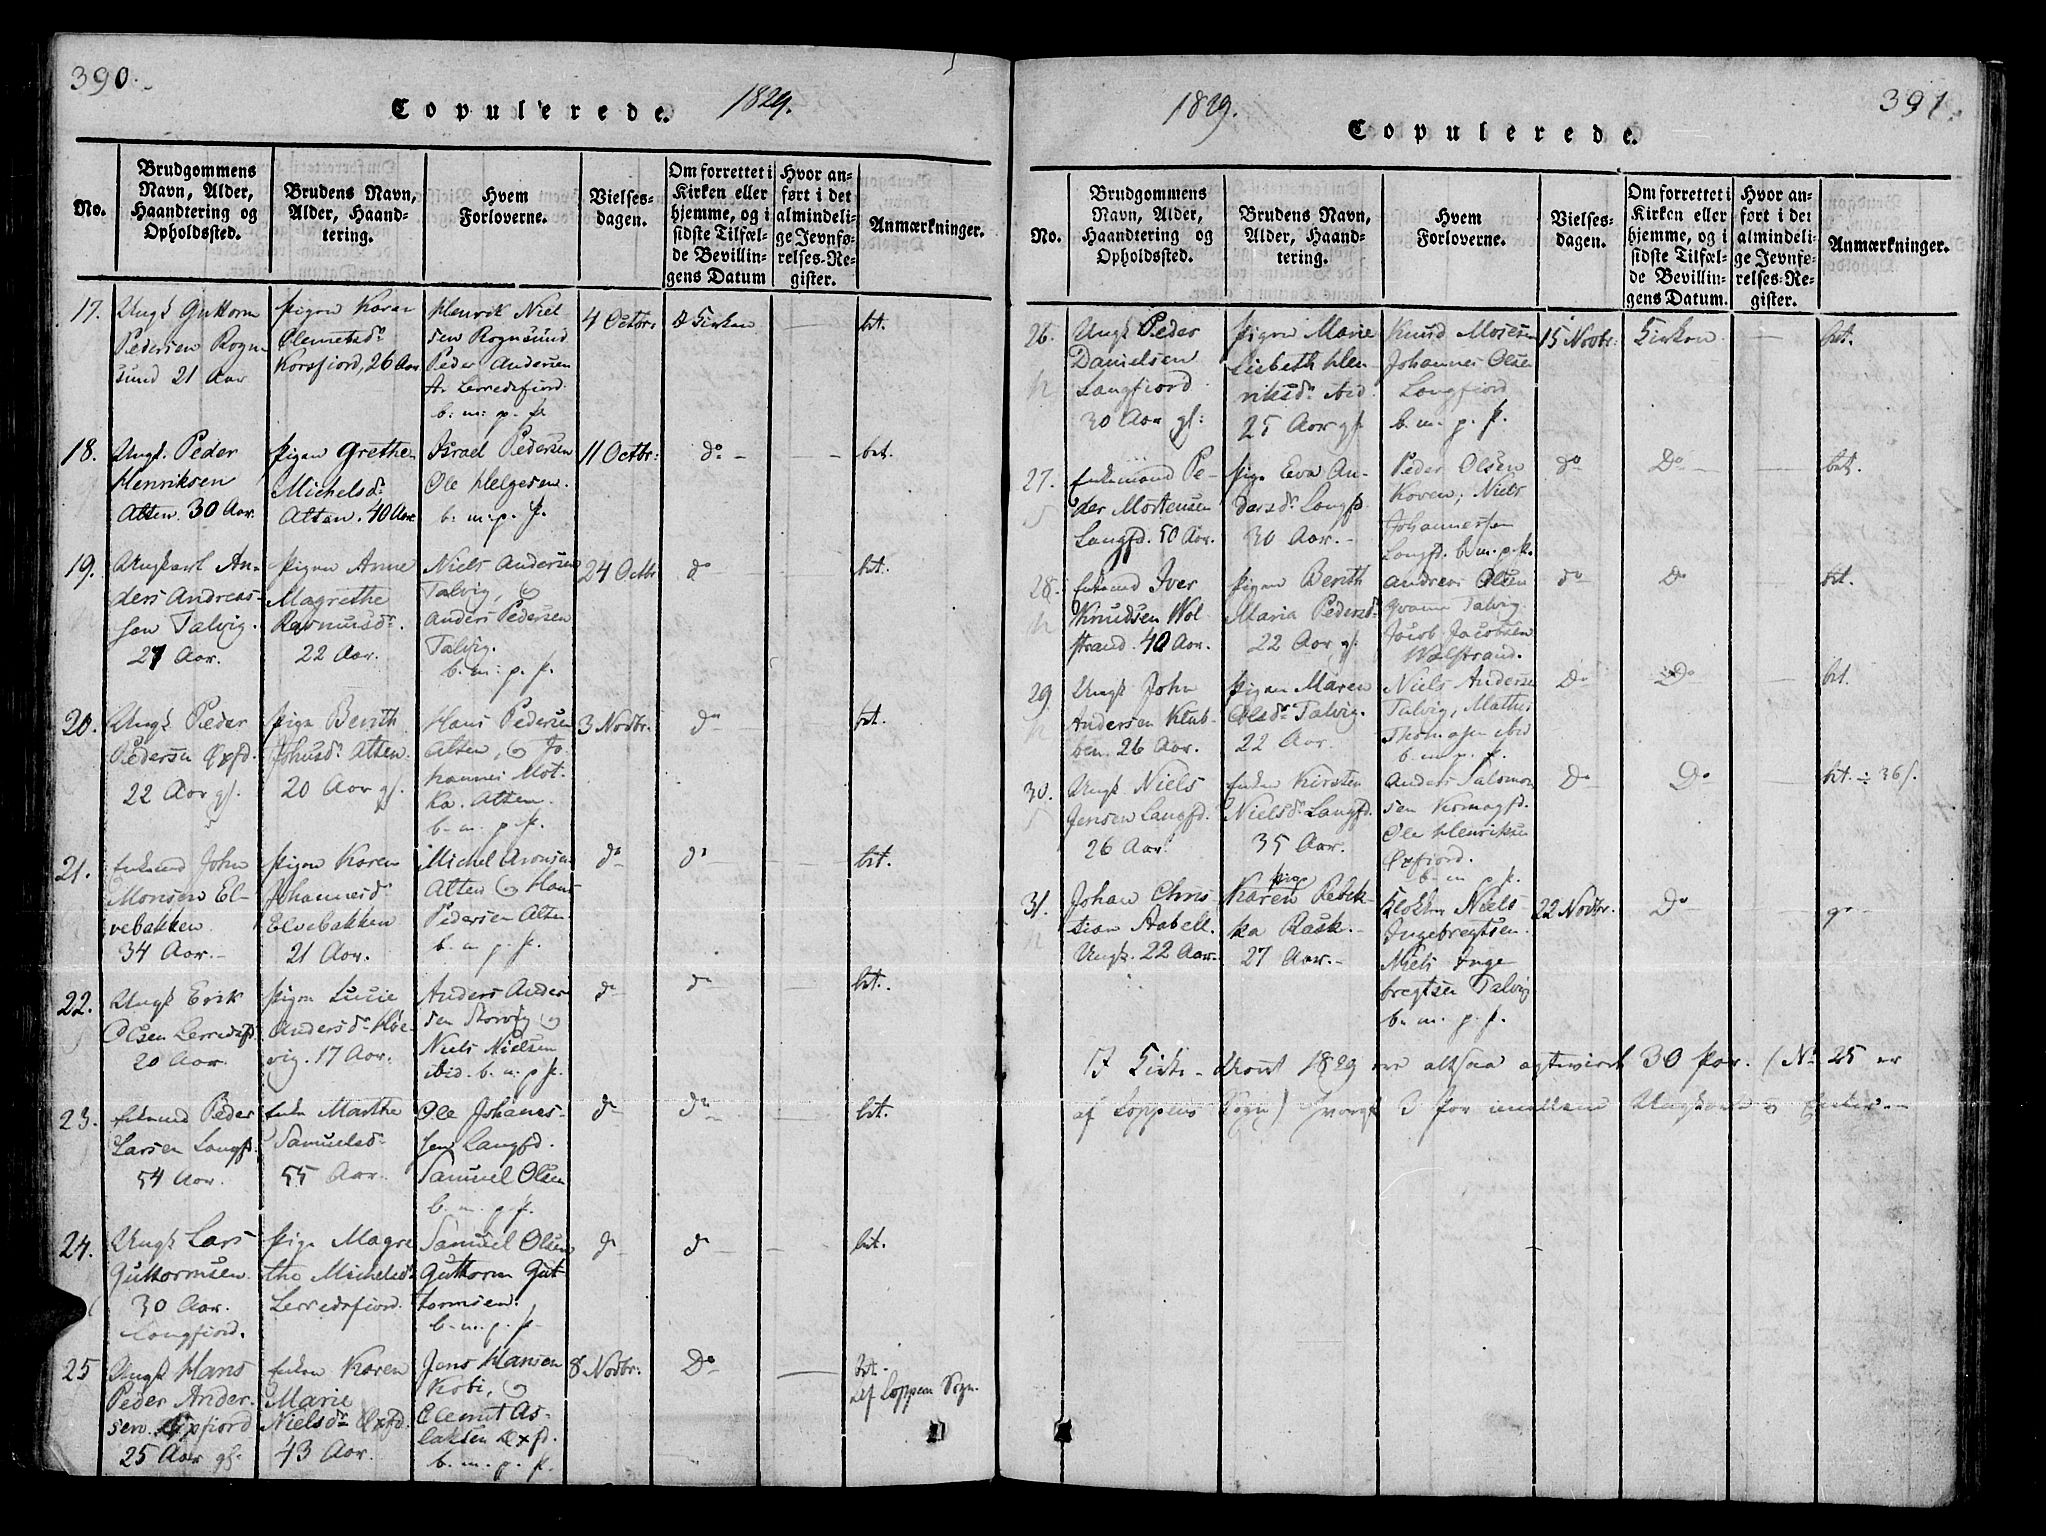 390.
Copulerede. 1829.
No.
Brudgommens Navn, Alder, Haandtering og Opholdssted.
Brudens Navn, Alder, Haand-tering.
Hvem Forloverne.
Vielses-dagen.
Om forrettet i Kirken eller hjemme, og i sidste Tilfæl-de Bevillin-gens Datum
Hvor an-ført i det almindeli-ge Jevnfø-relses-Re-gister.
Anmærkninger.
17.
Ungk Guttorm
Pedersen Rogn-
sund 21 Aar
Pigen Karen
Clemetsdr
Korsfiord, 26 Aar
Henrik Niel
sen Rognsund
Peder Andersen
Lerredsfiord
b: m: p. P.
4 Octbr:
Kirken
bet.
18.
Ungk. Peder
Henriksen
Alten. 30 Aar.
Pigen Grethe
Michelsdr
Alten. 40 Aar
Israel Pedersen
Ole Helgesen.
b. m. p. P.
11 Octbr:
do
bet.
19.
Ungkarl An-
ders Andreas-
sen Talvig.
27 Aar.
Pigen Anne
Magrethe
Rasmusdr.
22 Aar.
Niels Andersen
Talvig, og
Anders Pedersen
Talvig.
b. m. p. P.
24 Octbr
do
bet.
20.
Ungk Peder
Pedersen Qxfd.
22 Aar gl.
Pige Berith
Johnsdr Alten
20 Aar gl.
Hans Pedersen
Alten, og Jo
hannes Mot-
ka. Alten.
b. m. p. P.
3 Novbr.
do
bet.
21.
Enkemd John
Monsen El-
vebakken
34 Aar.
Pigen Karen
Johannesdr
Elvebakken
21 Aar.
Michel Aronsen
Alten og Hans
Pedersen Alten
b. m. p. P.
do
do
bet.
22.
Ungk Erik
Olsen Lerredsfd
20 Aar.
Pigen Lucie
Andersdr
vig. 17 Aar.
Anders Ander
sen Storvig og
Niels Nielsen
ibid. b. m. p P.
do
do
bet.
23.
Enkemd Peder
Larsen Langfd.
54 Aar.
Enke Marthe
Samuelsdr
55 Aar.
Ole Johanes-
sen Langfd.
Samuel Olsen
b. m. p P.
do
do
bet.
24.
Ungk Lars
Guttormsen
30 Aar.
Langfiord.
Pige Magre
the Michelsdr
Lerredsfiord.
Samuel Olsen
Guttorm Gut
tormsen.
b. m. p. P.
do
do
bet.
25
Ungk Hans
Peder Ander-
sen Qxfiord
25 Aar gl.
Enken Karen
Marie
Nielsdr Qxfd.
43 Aar.
Jens Hansen
Kobi, og
Clemet As-
laksen Qxfd.
b. m. p. P.
8 Novbr:
Do
bet.
Af Loppens Sogn.
1829.
Copulerede.
391.
No.
Brudgommens Navn, Alder, Haandtering og Opholdssted.
Brudens Navn, Alder, Haand-tering.
Hvem Forloverne.
Vielses-dagen.
Om forrettet i Kirken eller hjemme, og i sidste Tilfæl-de Bevillin-gens Datum.
Hvor an-ført i det almindeli-ge Jevnfø-relses-Re-gister.
Anmærkninger.
26.
Ungk Peder
Danielsen
Langfiord
30 Aar gl:
Pigen Marie
Lisbeth Hen-
riksdr ibid.
25 Aar gl.
Knud Mosesen
Johannes Olsen
Langfiord
b. m. p. P.
15 Novbr:
Kirken
bet.
27.
Enkemand Pe-
der Mortensen
Langfd. 50 Aar.
Pige Eva An-
dersdr Langfd.
30 Aar.
Peder Olsen
Koven, Niels
Johannessen
Langfd. b. m. p. P.
do
Do
bet.
28.
Enkemd Iver
Knudsen Wol
strand. 40 Aar.
Pigen Berith
Maria Pedersdr
22 Aar gl.
Andreas Olsen
Talvig.
Jacob Jacobsen
Wolstrand.
do
Do
bet.
29
Ungk John
Andersen Klub-
ben. 26 Aar.
Pigen Maren
Olsdr Talvig.
22 Aar.
Niels Andersen
Talvig, Mathis
Thomasen ibid
b. m. p. P.
Do
Do
bet.
30.
Ungk Niels
Jensen Langfd.
26 Aar
Enken Kirsten
Nielsdr Langfd.
35 Aar.
Anders Salomon
sen Komagfd.
Ole Henriksen
Qxfiord.
b. m p. P.
Do
Do
bet. ÷ 36 s.
31.
Johan Chris
tian Aabell.
Ungk. 22 Aar.
Pige
Karen Rebek-
ka Rask.
27 Aar.
Klokker Niels
Ingebregtsen.
Niels Inge
bregtsen Talvig
b. m. p. P.
22 Novbr.
Do
I Kirke-Aaret 1829 ere altsaa egteviet 30 Par. (No 25 er
af Loppens Sogn) hvoraf 3 Par imellem Ungkarle og Enker.